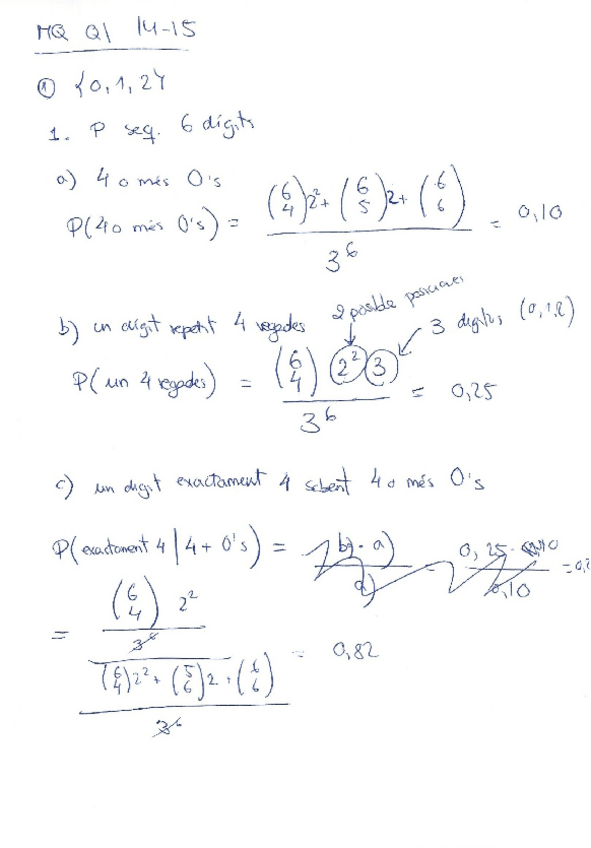 MQ Q1 14-15
① {0,1,2}
1. P seq. 6 dígits
a) 4 o més 0's
P(4 o més 0's) = ((6 4)2² + (6 5)2 + (6 6)) / 3⁶ = 0,10
b) un dígit repetit 4 vegades
2 posible posiciones
3 digitos (0,1,2)
P(un 4 vegades) = ((6 4) 2² 3) / 3⁶ = 0,25
c) un digit exactament 4 sabent 4 o més 0's
P(exactament 4 | 4+ 0's) = b) · a) / a) 0,25 · 0,10 / 0,10
= ((6 4) 2² / 3⁶) / (((6 4)2² + (5 6)2 + (6 6)) / 3⁶) = 0,82